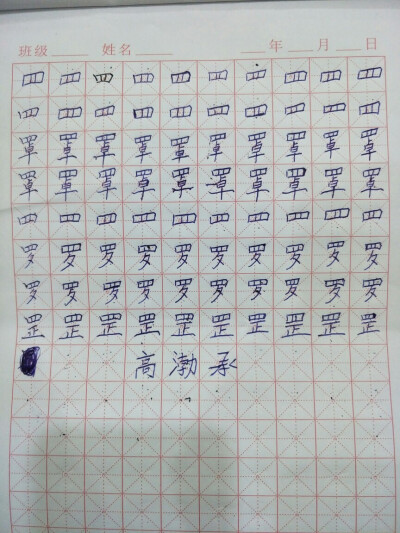 班级 姓名 年 月 日
罒罒罒罒罒罒罒罒罒罒
罒罒罒罒罒罒罒罒罒罒
罩罩罩罩罩罩罩罩罩罩
罩罩罩罩罩罩罩罩罩罩
罒罒罒罒罒罒罒罒罒罒
罗罗罗罗罗罗罗罗罗罗
罗罗罗罗罗罗罗罗罗罗
罡罡罡罡罡罡罡罡罡罡
高渤承